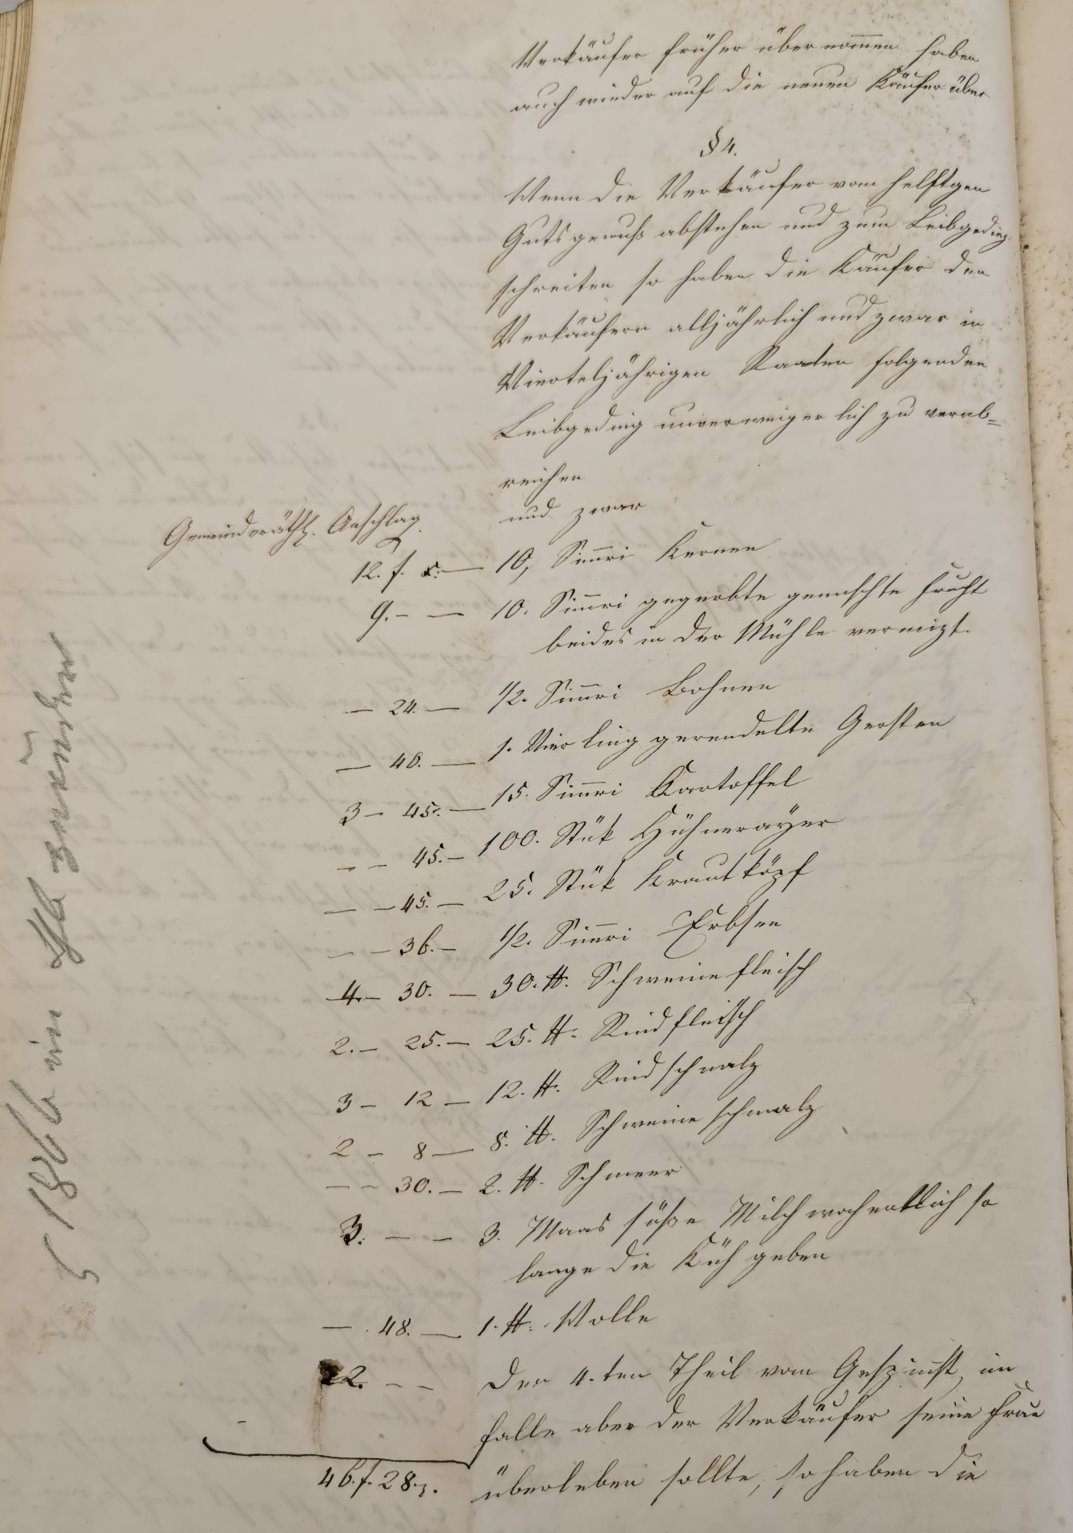 Verkäufer früher übernommen haben
auch wieder auf die neuen Käufer über
§ 4.
Wenn die Verkäufer vom helftgen
Gutsgenuß abstehen und zum Leibgeding
schreiten so haben die Käufer den
Verkäufern alljährlich und zwar in
Vierteljährigen Raaten folgenden
Leibgeding unverweigerlich zu verab=
reichen
und zwar
Gemeindräthl. Anschlag
12. f. x. — 10, Simri Kernen
9. – — 10. Simri gegerbte gemischte Frucht
beides in der Mühle vermizt.
— 24. — 1/2. Simri Bohnen
— 40. — 1. Vierling gerendelte Gersten
3 – 45. — 15. Simri Kartoffel
– – 45. – 100. Stük Hühnerayer
— – 45. — 25. Stük Krautköpf
– – 36. – 1/2. Simri Erbsen
4. – 30. — 30. ℔. Schweinefleisch
2. – 25. – 25. ℔. Rindfleisch
3 – 12 – 12. ℔. Rindschmalz
2 – 8 — 8. ℔. Schweineschmalz
– – 30. – 2. ℔. Schmeer
3. – – 3. Maas süße Milch wochentlich so
lange die Küh geben
— . 48. — 1. ℔. Wolle
22. – – Den 4.ten Theil vom Gespinst, im
Falle aber der Verkäufer seine Frau
46. f. 28. überleben sollte, so haben die
1866 in